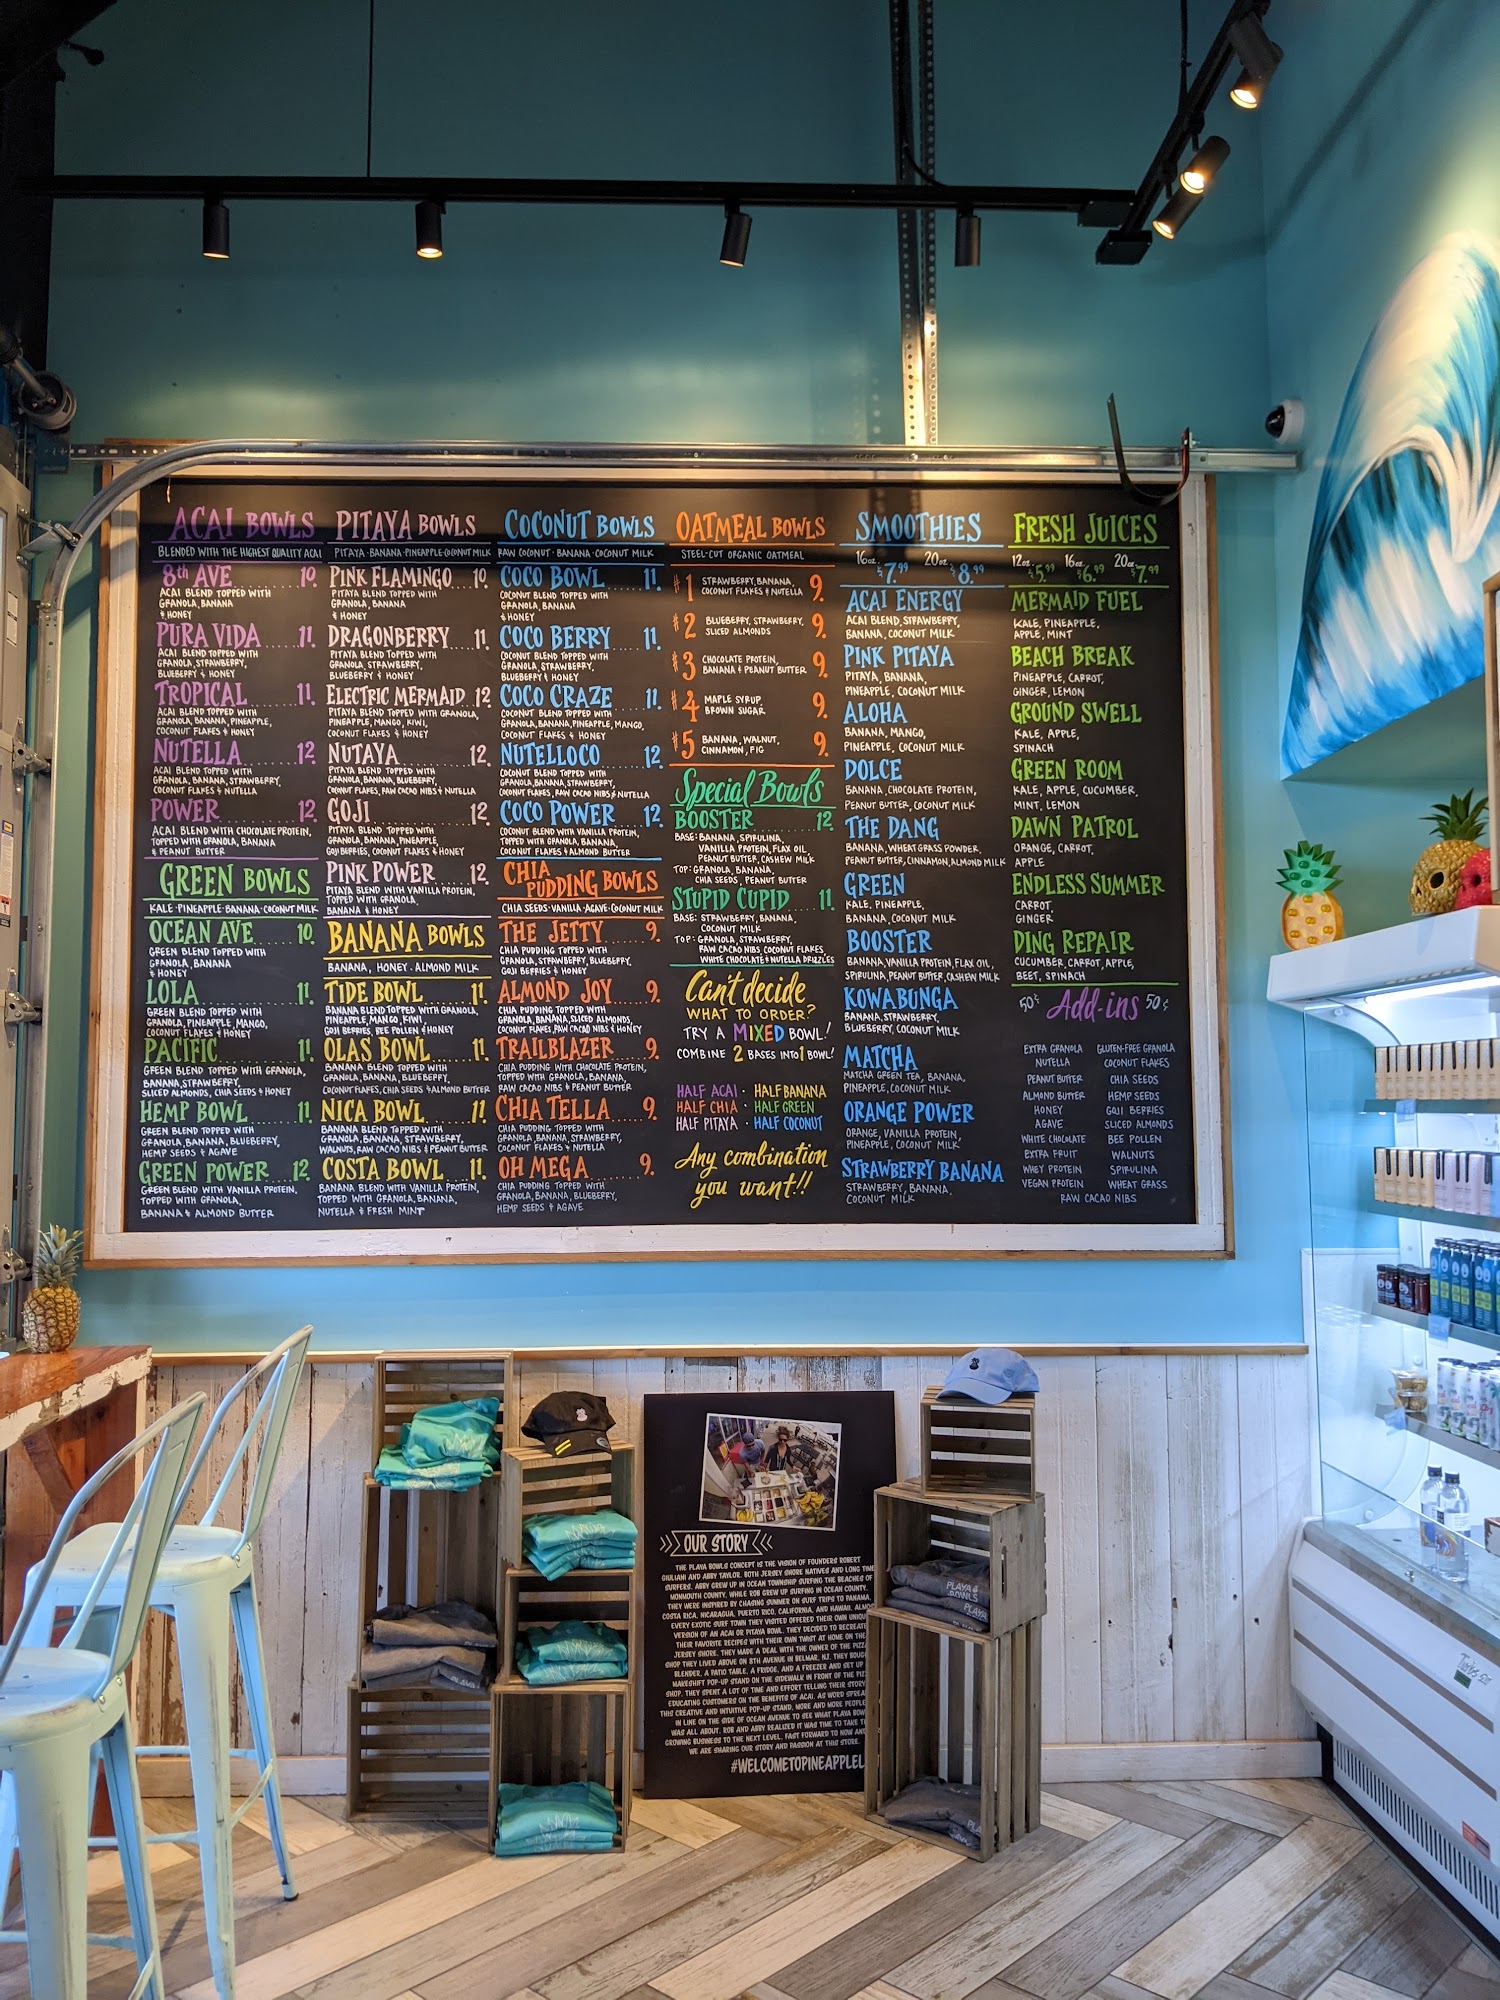 ACAI BOWLS
BLENDED WITH THE HIGHEST QUALITY ACAI
8th AVE.......10.
ACAI BLEND TOPPED WITH
GRANOLA, BANANA
& HONEY
PURA VIDA.....11.
ACAI BLEND TOPPED WITH
GRANOLA, STRAWBERRY,
BLUEBERRY & HONEY
TROPICAL......11.
ACAI BLEND TOPPED WITH
GRANOLA, BANANA, PINEAPPLE,
COCONUT FLAKES & HONEY
NUTELLA.......12.
ACAI BLEND TOPPED WITH
GRANOLA, BANANA, STRAWBERRY,
COCONUT FLAKES & NUTELLA
POWER.........12.
ACAI BLEND WITH CHOCOLATE PROTEIN,
TOPPED WITH GRANOLA, BANANA
& PEANUT BUTTER
GREEN BOWLS
KALE·PINEAPPLE·BANANA·COCONUT MILK
OCEAN AVE.....10.
GREEN BLEND TOPPED WITH
GRANOLA, BANANA
& HONEY
LOLA..........11.
GREEN BLEND TOPPED WITH
GRANOLA, PINEAPPLE, MANGO,
COCONUT FLAKES & HONEY
PACIFIC.......11.
GREEN BLEND TOPPED WITH GRANOLA,
BANANA, STRAWBERRY,
SLICED ALMONDS, CHIA SEEDS & HONEY
HEMP BOWL.....11.
GREEN BLEND TOPPED WITH
GRANOLA, BANANA, BLUEBERRY,
HEMP SEEDS & AGAVE
GREEN POWER...12.
GREEN BLEND WITH VANILLA PROTEIN,
TOPPED WITH GRANOLA,
BANANA & ALMOND BUTTER
PITAYA BOWLS
PITAYA·BANANA·PINEAPPLE·COCONUT MILK
PINK FLAMINGO...10.
PITAYA BLEND TOPPED WITH
GRANOLA, BANANA
& HONEY
DRAGONBERRY.....11.
PITAYA BLEND TOPPED WITH
GRANOLA, STRAWBERRY,
BLUEBERRY & HONEY
ELECTRIC MERMAID..12.
PITAYA BLEND TOPPED WITH GRANOLA,
PINEAPPLE, MANGO, KIWI,
COCONUT FLAKES & HONEY
NUTAYA..........12.
PITAYA BLEND TOPPED WITH
GRANOLA, BANANA, BLUEBERRY,
COCONUT FLAKES, RAW CACAO NIBS & NUTELLA
GOJI............12.
PITAYA BLEND TOPPED WITH
GRANOLA, BANANA, PINEAPPLE,
GOJI BERRIES, COCONUT FLAKES & HONEY
PINK POWER......12.
PITAYA BLEND WITH VANILLA PROTEIN,
TOPPED WITH GRANOLA,
BANANA & HONEY
BANANA BOWLS
BANANA, HONEY·ALMOND MILK
TIDE BOWL.......11.
BANANA BLEND TOPPED WITH GRANOLA,
PINEAPPLE, MANGO, KIWI,
GOJI BERRIES, BEE POLLEN & HONEY
OLAS BOWL.......11.
BANANA BLEND TOPPED WITH
GRANOLA, BANANA, BLUEBERRY,
COCONUT FLAKES, CHIA SEEDS & ALMOND BUTTER
NICA BOWL.......11.
BANANA BLEND TOPPED WITH
GRANOLA, BANANA, STRAWBERRY,
WALNUTS, RAW CACAO NIBS & PEANUT BUTTER
COSTA BOWL......11.
BANANA BLEND WITH VANILLA PROTEIN,
TOPPED WITH GRANOLA, BANANA,
NUTELLA & FRESH MINT
COCONUT BOWLS
RAW COCONUT·BANANA·COCONUT MILK
COCO BOWL.......11.
COCONUT BLEND TOPPED WITH
GRANOLA, BANANA
& HONEY
COCO BERRY......11.
COCONUT BLEND TOPPED WITH
GRANOLA, STRAWBERRY,
BLUEBERRY & HONEY
COCO CRAZE......11.
COCONUT BLEND TOPPED WITH
GRANOLA, BANANA, PINEAPPLE, MANGO,
COCONUT FLAKES & HONEY
NUTELLOCO.......12.
COCONUT BLEND TOPPED WITH
GRANOLA, BANANA, STRAWBERRY,
COCONUT FLAKES, RAW CACAO NIBS & NUTELLA
COCO POWER......12.
COCONUT BLEND WITH VANILLA PROTEIN,
TOPPED WITH GRANOLA, BANANA,
COCONUT FLAKES & ALMOND BUTTER
CHIA
PUDDING BOWLS
CHIA SEEDS·VANILLA·AGAVE·COCONUT MILK
THE JETTY.......9.
CHIA PUDDING TOPPED WITH
GRANOLA, STRAWBERRY, BLUEBERRY,
GOJI BERRIES & HONEY
ALMOND JOY......9.
CHIA PUDDING TOPPED WITH
GRANOLA, BANANA, SLICED ALMONDS,
COCONUT FLAKES, RAW CACAO NIBS & HONEY
TRAILBLAZER.....9.
CHIA PUDDING WITH CHOCOLATE PROTEIN,
TOPPED WITH GRANOLA, BANANA,
RAW CACAO NIBS & PEANUT BUTTER
CHIA TELLA......9.
CHIA PUDDING TOPPED WITH
GRANOLA, BANANA, STRAWBERRY,
COCONUT FLAKES & NUTELLA
OH MEGA.........9.
CHIA PUDDING TOPPED WITH
GRANOLA, BANANA, BLUEBERRY,
HEMP SEEDS & AGAVE
OATMEAL BOWLS
STEEL-CUT ORGANIC OATMEAL
#1 STRAWBERRY, BANANA, COCONUT FLAKES & NUTELLA 9.
#2 BLUEBERRY, STRAWBERRY, SLICED ALMONDS 9.
#3 CHOCOLATE PROTEIN, BANANA & PEANUT BUTTER 9.
#4 MAPLE SYRUP, BROWN SUGAR 9.
#5 BANANA, WALNUT, CINNAMON, FIG 9.
Special Bowls
BOOSTER.........12.
BASE: BANANA, SPIRULINA,
VANILLA PROTEIN, FLAX OIL,
PEANUT BUTTER, CASHEW MILK
TOP: GRANOLA, BANANA,
CHIA SEEDS, PEANUT BUTTER
STUPID CUPID....11.
BASE: STRAWBERRY, BANANA,
COCONUT MILK
TOP: GRANOLA, STRAWBERRY,
RAW CACAO NIBS, COCONUT FLAKES,
WHITE CHOCOLATE & NUTELLA DRIZZLES
Can't decide
WHAT TO ORDER?
TRY A MIXED BOWL!
COMBINE 2 BASES INTO 1 BOWL!
HALF ACAI · HALF BANANA
HALF CHIA · HALF GREEN
HALF PITAYA · HALF COCONUT
Any combination
you want!!
SMOOTHIES
16oz. $7.99 20oz. $8.99
ACAI ENERGY
ACAI BLEND, STRAWBERRY,
BANANA, COCONUT MILK
PINK PITAYA
PITAYA, BANANA,
PINEAPPLE, COCONUT MILK
ALOHA
BANANA, MANGO,
PINEAPPLE, COCONUT MILK
DOLCE
BANANA, CHOCOLATE PROTEIN,
PEANUT BUTTER, COCONUT MILK
THE DANG
BANANA, WHEAT GRASS POWDER,
PEANUT BUTTER, CINNAMON, ALMOND MILK
GREEN
KALE, PINEAPPLE,
BANANA, COCONUT MILK
BOOSTER
BANANA, VANILLA PROTEIN, FLAX OIL,
SPIRULINA, PEANUT BUTTER, CASHEW MILK
KOWABUNGA
BANANA, STRAWBERRY,
BLUEBERRY, COCONUT MILK
MATCHA
MATCHA GREEN TEA, BANANA,
PINEAPPLE, COCONUT MILK
ORANGE POWER
ORANGE, VANILLA PROTEIN,
PINEAPPLE, COCONUT MILK
STRAWBERRY BANANA
STRAWBERRY, BANANA,
COCONUT MILK
FRESH JUICES
12oz. $5.99 16oz. $6.99 20oz. $7.99
MERMAID FUEL
KALE, PINEAPPLE,
APPLE, MINT
BEACH BREAK
PINEAPPLE, CARROT,
GINGER, LEMON
GROUND SWELL
KALE, APPLE,
SPINACH
GREEN ROOM
KALE, APPLE, CUCUMBER,
MINT, LEMON
DAWN PATROL
ORANGE, CARROT,
APPLE
ENDLESS SUMMER
CARROT,
GINGER
DING REPAIR
CUCUMBER, CARROT, APPLE,
BEET, SPINACH
50¢ Add-ins 50¢
EXTRA GRANOLA GLUTEN-FREE GRANOLA
NUTELLA COCONUT FLAKES
PEANUT BUTTER CHIA SEEDS
ALMOND BUTTER HEMP SEEDS
HONEY GOJI BERRIES
AGAVE SLICED ALMONDS
WHITE CHOCOLATE BEE POLLEN
EXTRA FRUIT WALNUTS
WHEY PROTEIN SPIRULINA
VEGAN PROTEIN WHEAT GRASS
RAW CACAO NIBS
OUR STORY
THE PLAYA BOWLS CONCEPT IS THE VISION OF FOUNDERS ROBERT
GIULIANI AND ABBY TAYLOR. BOTH JERSEY SHORE NATIVES AND LONG TIME
SURFERS. ABBY GREW UP IN OCEAN TOWNSHIP SURFING THE BEACHES OF
MONMOUTH COUNTY, WHILE ROB GREW UP SURFING IN OCEAN COUNTY.
THEY WERE INSPIRED BY CHASING SUMMER ON SURF TRIPS TO PANAMA,
COSTA RICA, NICARAGUA, PUERTO RICO, CALIFORNIA, AND HAWAII.
EVERY EXOTIC SURF TOWN THEY VISITED OFFERED THEIR OWN
VERSION OF AN ACAI OR PITAYA BOWL. THEY DECIDED TO RECREATE
THEIR FAVORITE RECIPES WITH THEIR OWN TWIST AT HOME ON THE
JERSEY SHORE. THEY MADE A DEAL WITH THE OWNER OF THE
SHOP THEY LIVED ABOVE ON 8TH AVENUE IN BELMAR, NJ. THEY
BLENDER, A PATIO TABLE, A FRIDGE, AND A FREEZER AND SET UP
MAKESHIFT POP-UP STAND ON THE SIDEWALK IN FRONT OF THE
SHOP. THEY SPENT A LOT OF TIME AND EFFORT TELLING THEIR STORY
EDUCATING CUSTOMERS ON THE BENEFITS OF ACAI. AS WORD
THIS CREATIVE AND INTUITIVE POP-UP STAND, MORE AND MORE PEOPLE
IN LINE ON THE SIDE OF OCEAN AVENUE TO SEE WHAT PLAYA
WAS ALL ABOUT. ROB AND ABBY REALIZED IT WAS TIME TO TAKE
GROWING BUSINESS TO THE NEXT LEVEL. FAST FORWARD TO NOW AND
WE ARE SHARING OUR STORY AND PASSION AT THIS STORE.
#WELCOMETOPINEAPPLEL
PLAYA
BOWLS
PLAYA